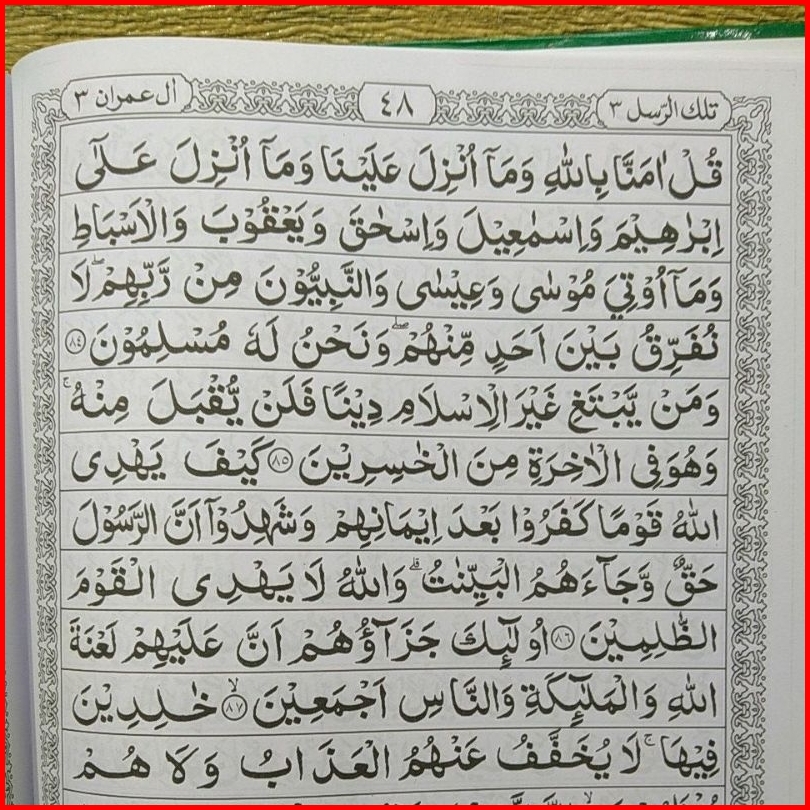 تلك الرّسل ٣ ٤٨ اٰل عمران ٣
قُلْ اٰمَنَّا بِاللّٰهِ وَمَآ اُنْزِلَ عَلَيْنَا وَمَآ اُنْزِلَ عَلٰٓى
اِبْرٰهِيْمَ وَاِسْمٰعِيْلَ وَاِسْحٰقَ وَيَعْقُوْبَ وَالْاَسْبَاطِ
وَمَآ اُوْتِيَ مُوْسٰى وَعِيْسٰى وَالنَّبِيُّوْنَ مِنْ رَّبِّهِمْ ۖ لَا
نُفَرِّقُ بَيْنَ اَحَدٍ مِّنْهُمْ ۖ وَنَحْنُ لَهٗ مُسْلِمُوْنَ ٨٤
وَمَنْ يَّبْتَغِ غَيْرَ الْاِسْلَامِ دِيْنًا فَلَنْ يُّقْبَلَ مِنْهُ ۚ
وَهُوَ فِى الْاٰخِرَةِ مِنَ الْخٰسِرِيْنَ ٨٥ كَيْفَ يَهْدِى
اللّٰهُ قَوْمًا كَفَرُوْا بَعْدَ اِيْمَانِهِمْ وَشَهِدُوْٓا اَنَّ الرَّسُوْلَ
حَقٌّ وَّجَآءَهُمُ الْبَيِّنٰتُ ۗ وَاللّٰهُ لَا يَهْدِى الْقَوْمَ
الظّٰلِمِيْنَ ٨٦ اُولٰٓئِكَ جَزَآؤُهُمْ اَنَّ عَلَيْهِمْ لَعْنَةَ
اللّٰهِ وَالْمَلٰٓئِكَةِ وَالنَّاسِ اَجْمَعِيْنَ ٨٧ ۙ خٰلِدِيْنَ
فِيْهَا ۚ لَا يُخَفَّفُ عَنْهُمُ الْعَذَابُ وَلَا هُمْ